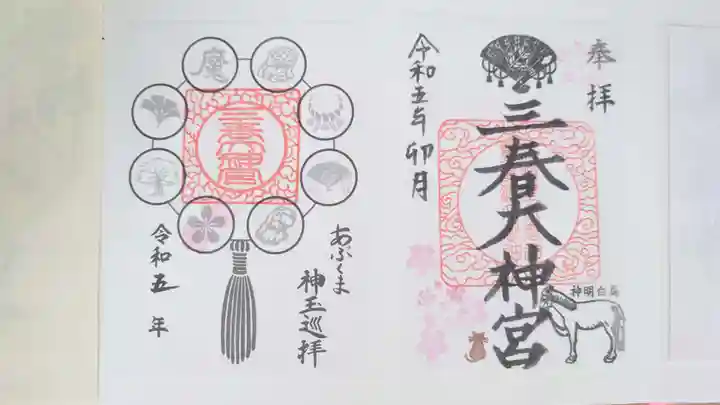 奉拝
三春大神宮
令和五年卯月
神明白馬
魔
あぶくま
神玉巡拝
令和五年